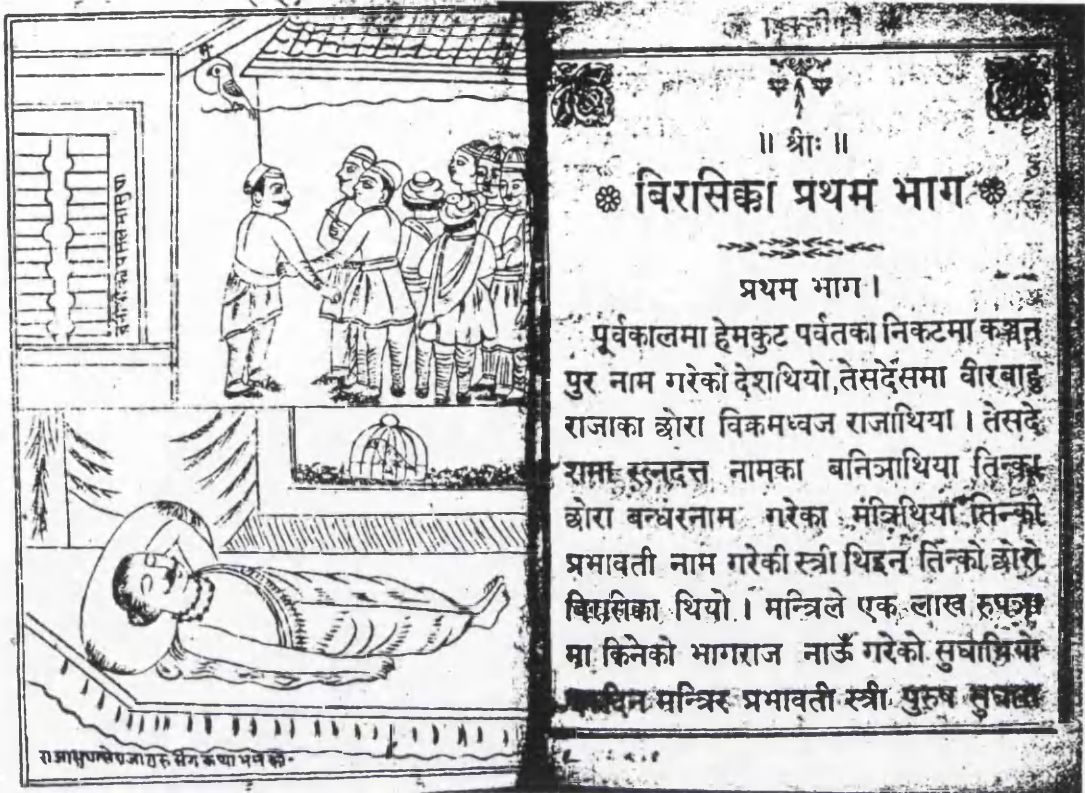 ॥ श्रीः ॥
बिरसिक्का प्रथम भाग
प्रथम भाग ।
पूर्वकालमा हेमकुट पर्वतका निकटमा कञ्चन
पुर नाम गरेको देशथियो, तेसदेसमा वीरबाहु
राजाका छोरा विक्रमध्वज राजाथिया । तेसदे
शमा रत्नदत्त नामका बनिञाथिया तिन्का
छोरा बन्धरनाम गरेका मंत्रिथिया तिन्की
प्रभावती नाम गरेकी स्त्री थिइन् तिन्को छोरो
बिरसिका थियो । मन्त्रिले एक लाख रुपञा
मा किनेको भागराज नाऊँ गरेको सुघाथियो
मन्त्रिर प्रभावती स्त्री पुरुष